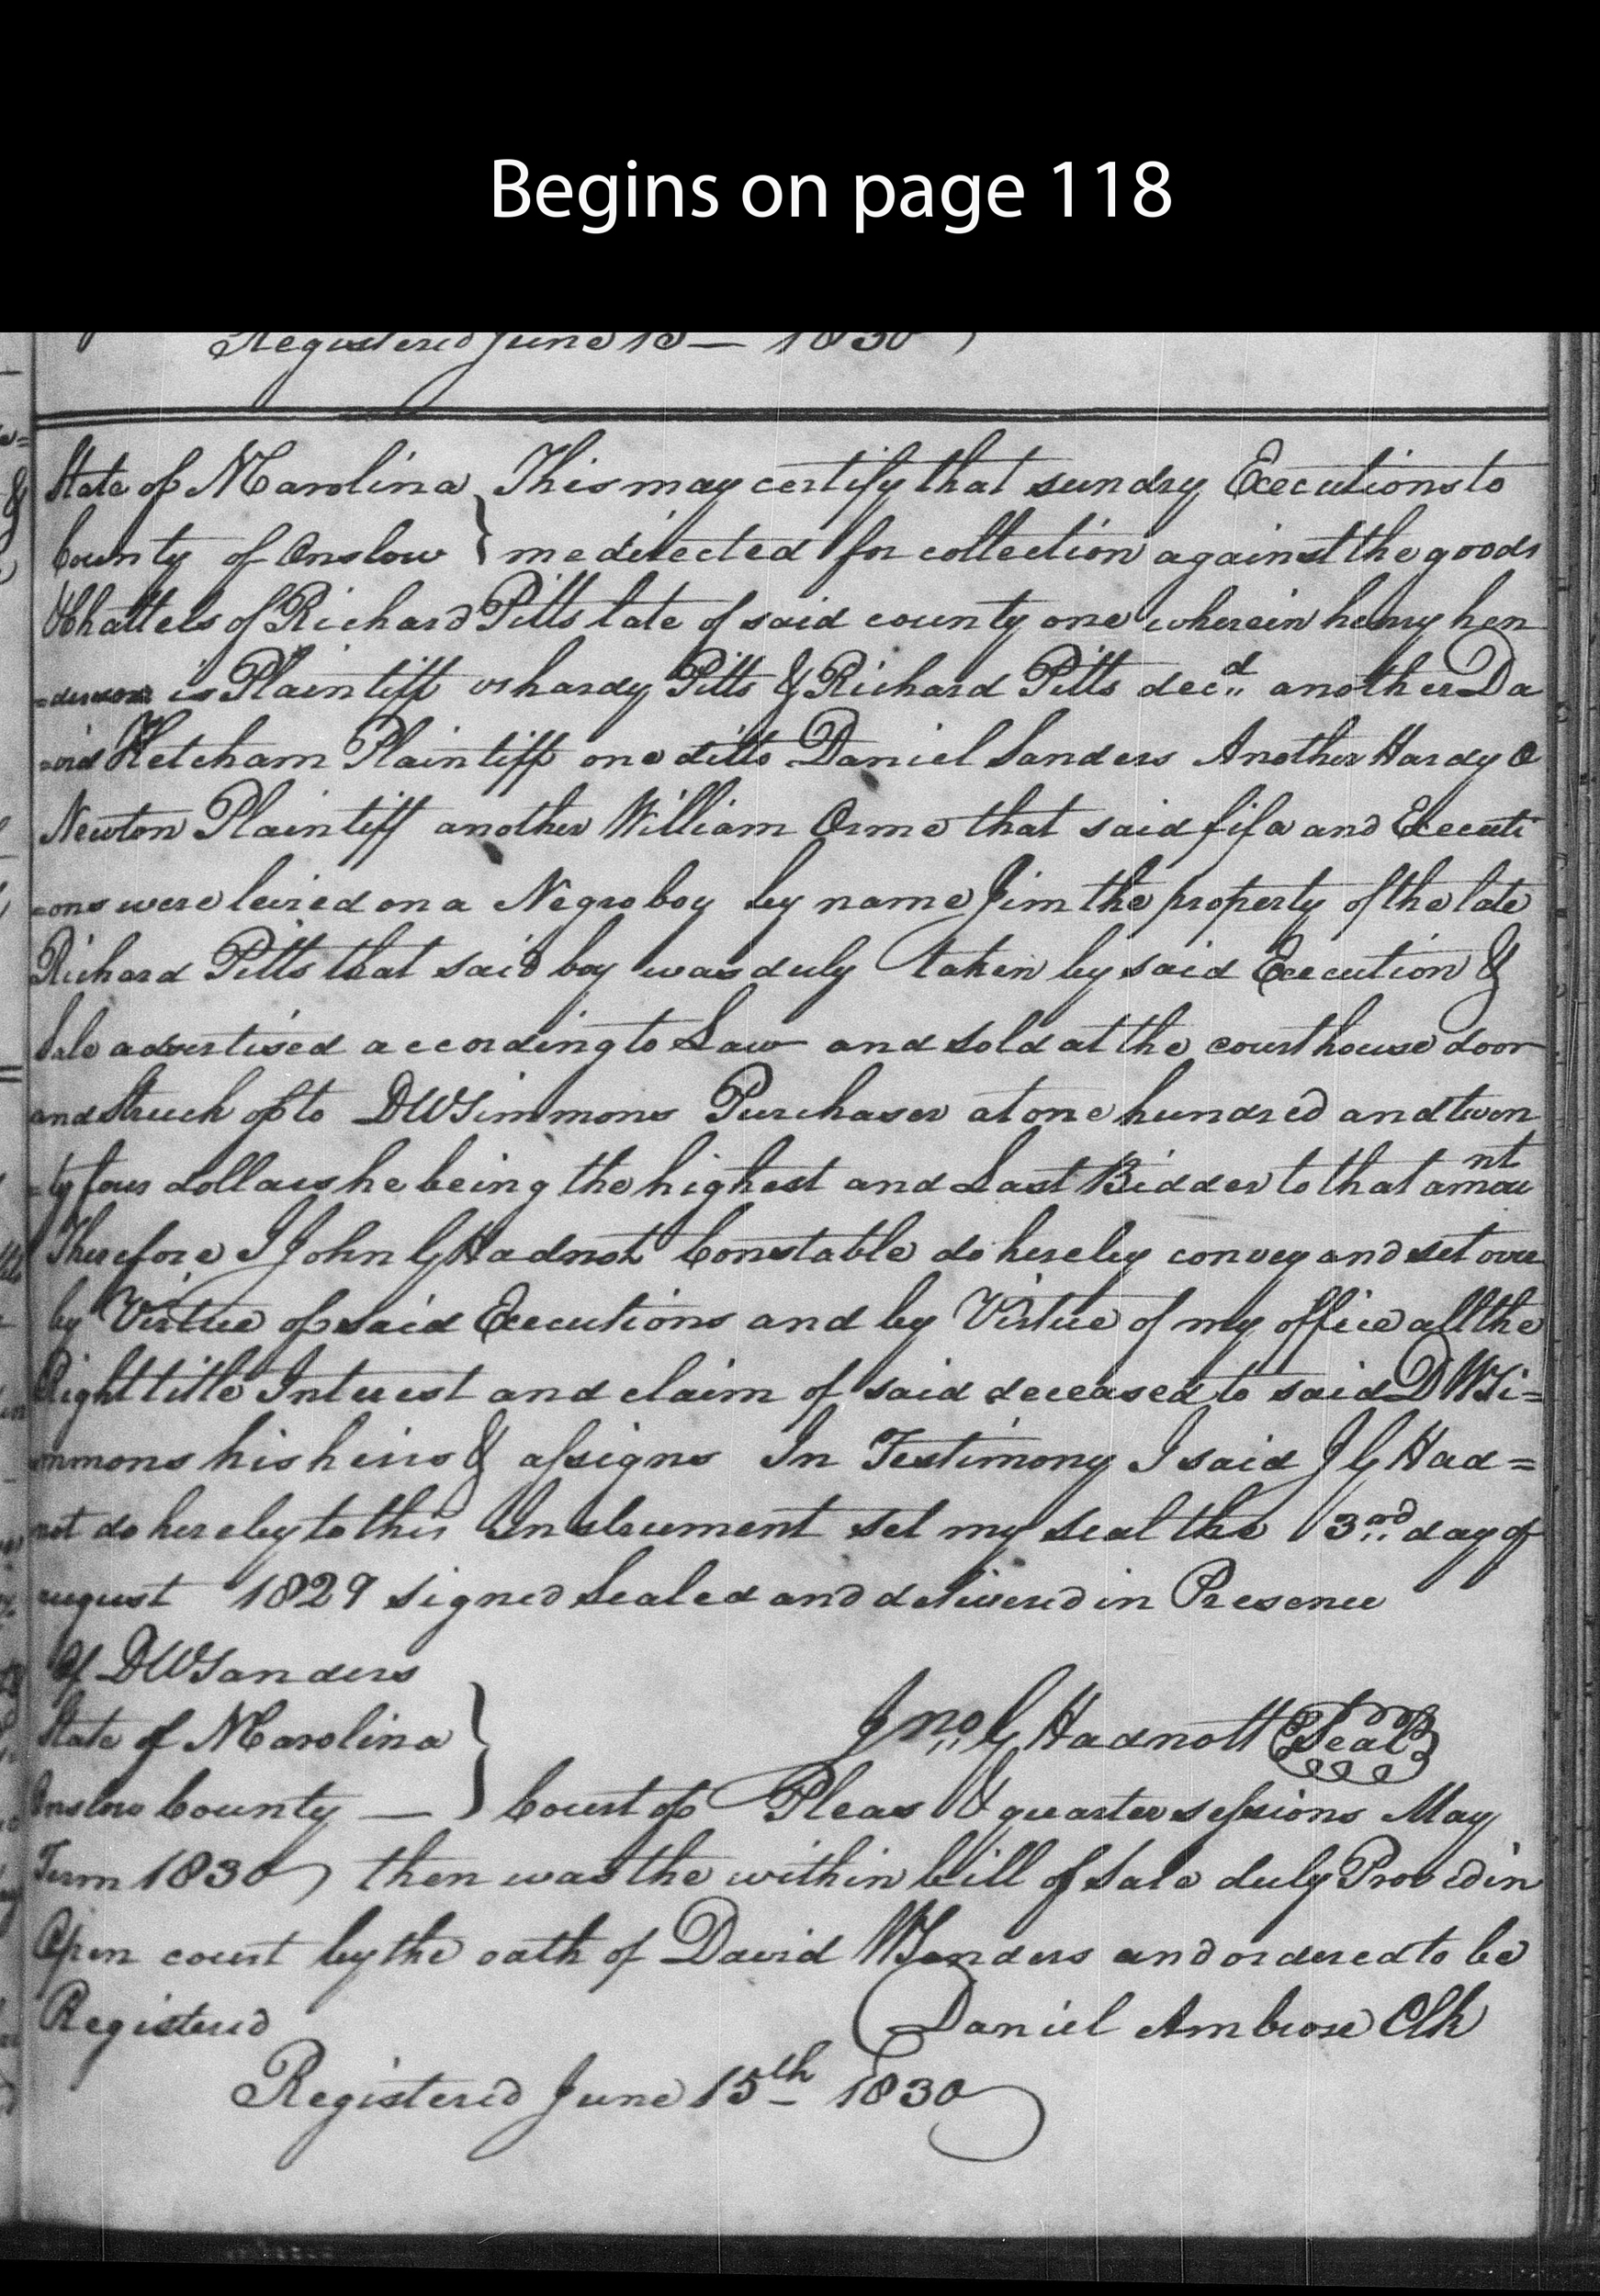 Begins on page 118
Registered June 15 — 1830
State of N Carolina } This may certify that sundry Executions to
County of Onslow } me directed for collection against the goods
& Chattels of Richard Pitts late of said county one wherein henry hen
=derson is Plaintiff vs hardy Pitts & Richard Pitts decd another Da
=vid Ketcham Plaintiff one ditto Daniel Sanders Another Hardy O
Newton Plaintiff another William Orme that said fifa and Executi
=ons were leived on a Negro boy by name Jim the property of the late
Richard Pitts that said boy was duly taken by said Execution &
Sale advertised according to Law and sold at the courthouse door
and Struck of to D W Simmons Purchaser at one hundred and twen
=ty four dollars he being the highest and Last Bidder to that amount
Therefore I John G Hadnot Constable do hereby convey and set over
by Virtue of said Executions and by Virtue of my office all the
Right title Interest and claim of said deceased to said D W Si=
mmons his heirs & assigns In Testimony I said J G Had=
not do hereby to this Instrument set my seal the 3rd day of
august 1829 signed Sealed and delivered in Presence
Of D W Sanders
State of N Carolina } Jno G Hadnott Seal
Onslow County — } Court of Pleas & quarter sessions May
Term 1830 then was the within bill of Sale duly Proved in
Open court by the oath of David W Sanders and ordered to be
Registered Daniel Ambrose Clk
Registered June 15th 1830